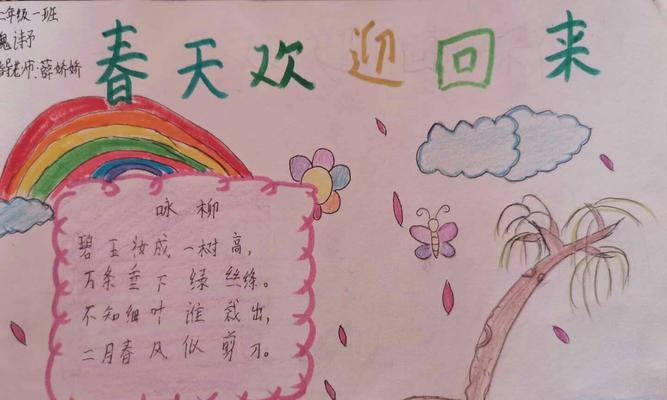 二年级一班
魏诗予
导老师:薛娇娇
春天欢迎回来
咏柳
碧玉妆成一树高,
万条垂下绿丝绦。
不知细叶谁裁出,
二月春风似剪刀。